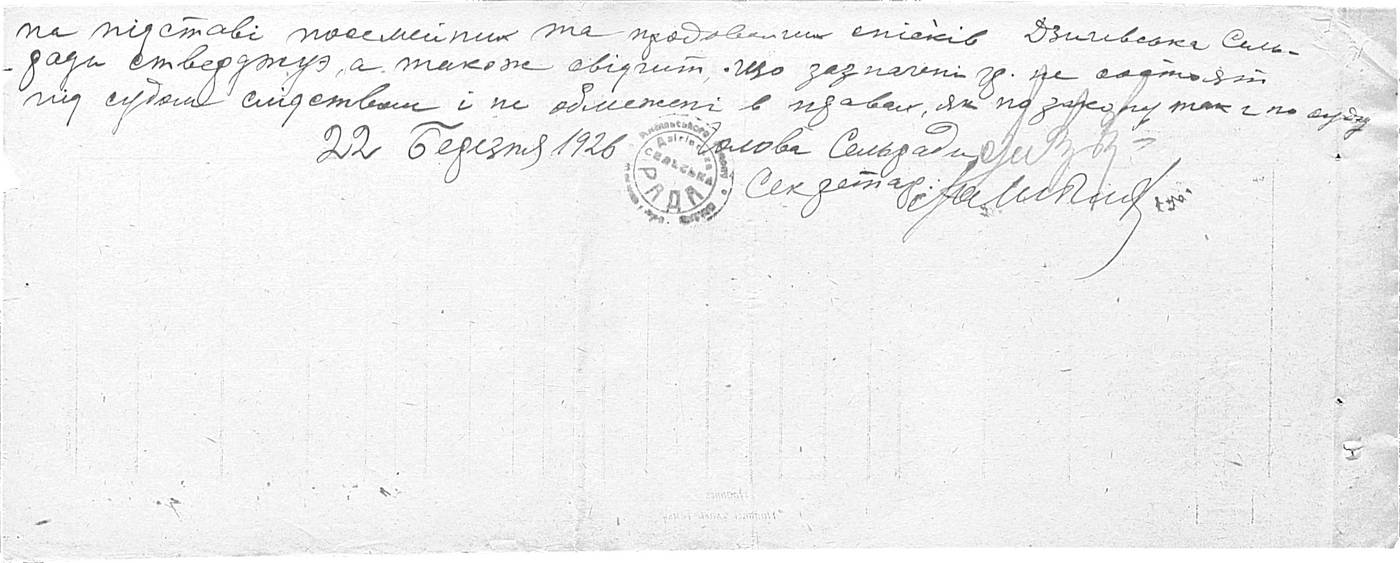 на підставі посемейних та продовольчих спісків Дзигівська Сель-
ради стверджує, а також свідчит, що зазначені гр. не состоят
під судом слідством і не обмежені в правах, як по закону так і по суду
22 Березня 1926 Голова Сельради
Секретар:
СЕЛЬСЬКА
РАДА